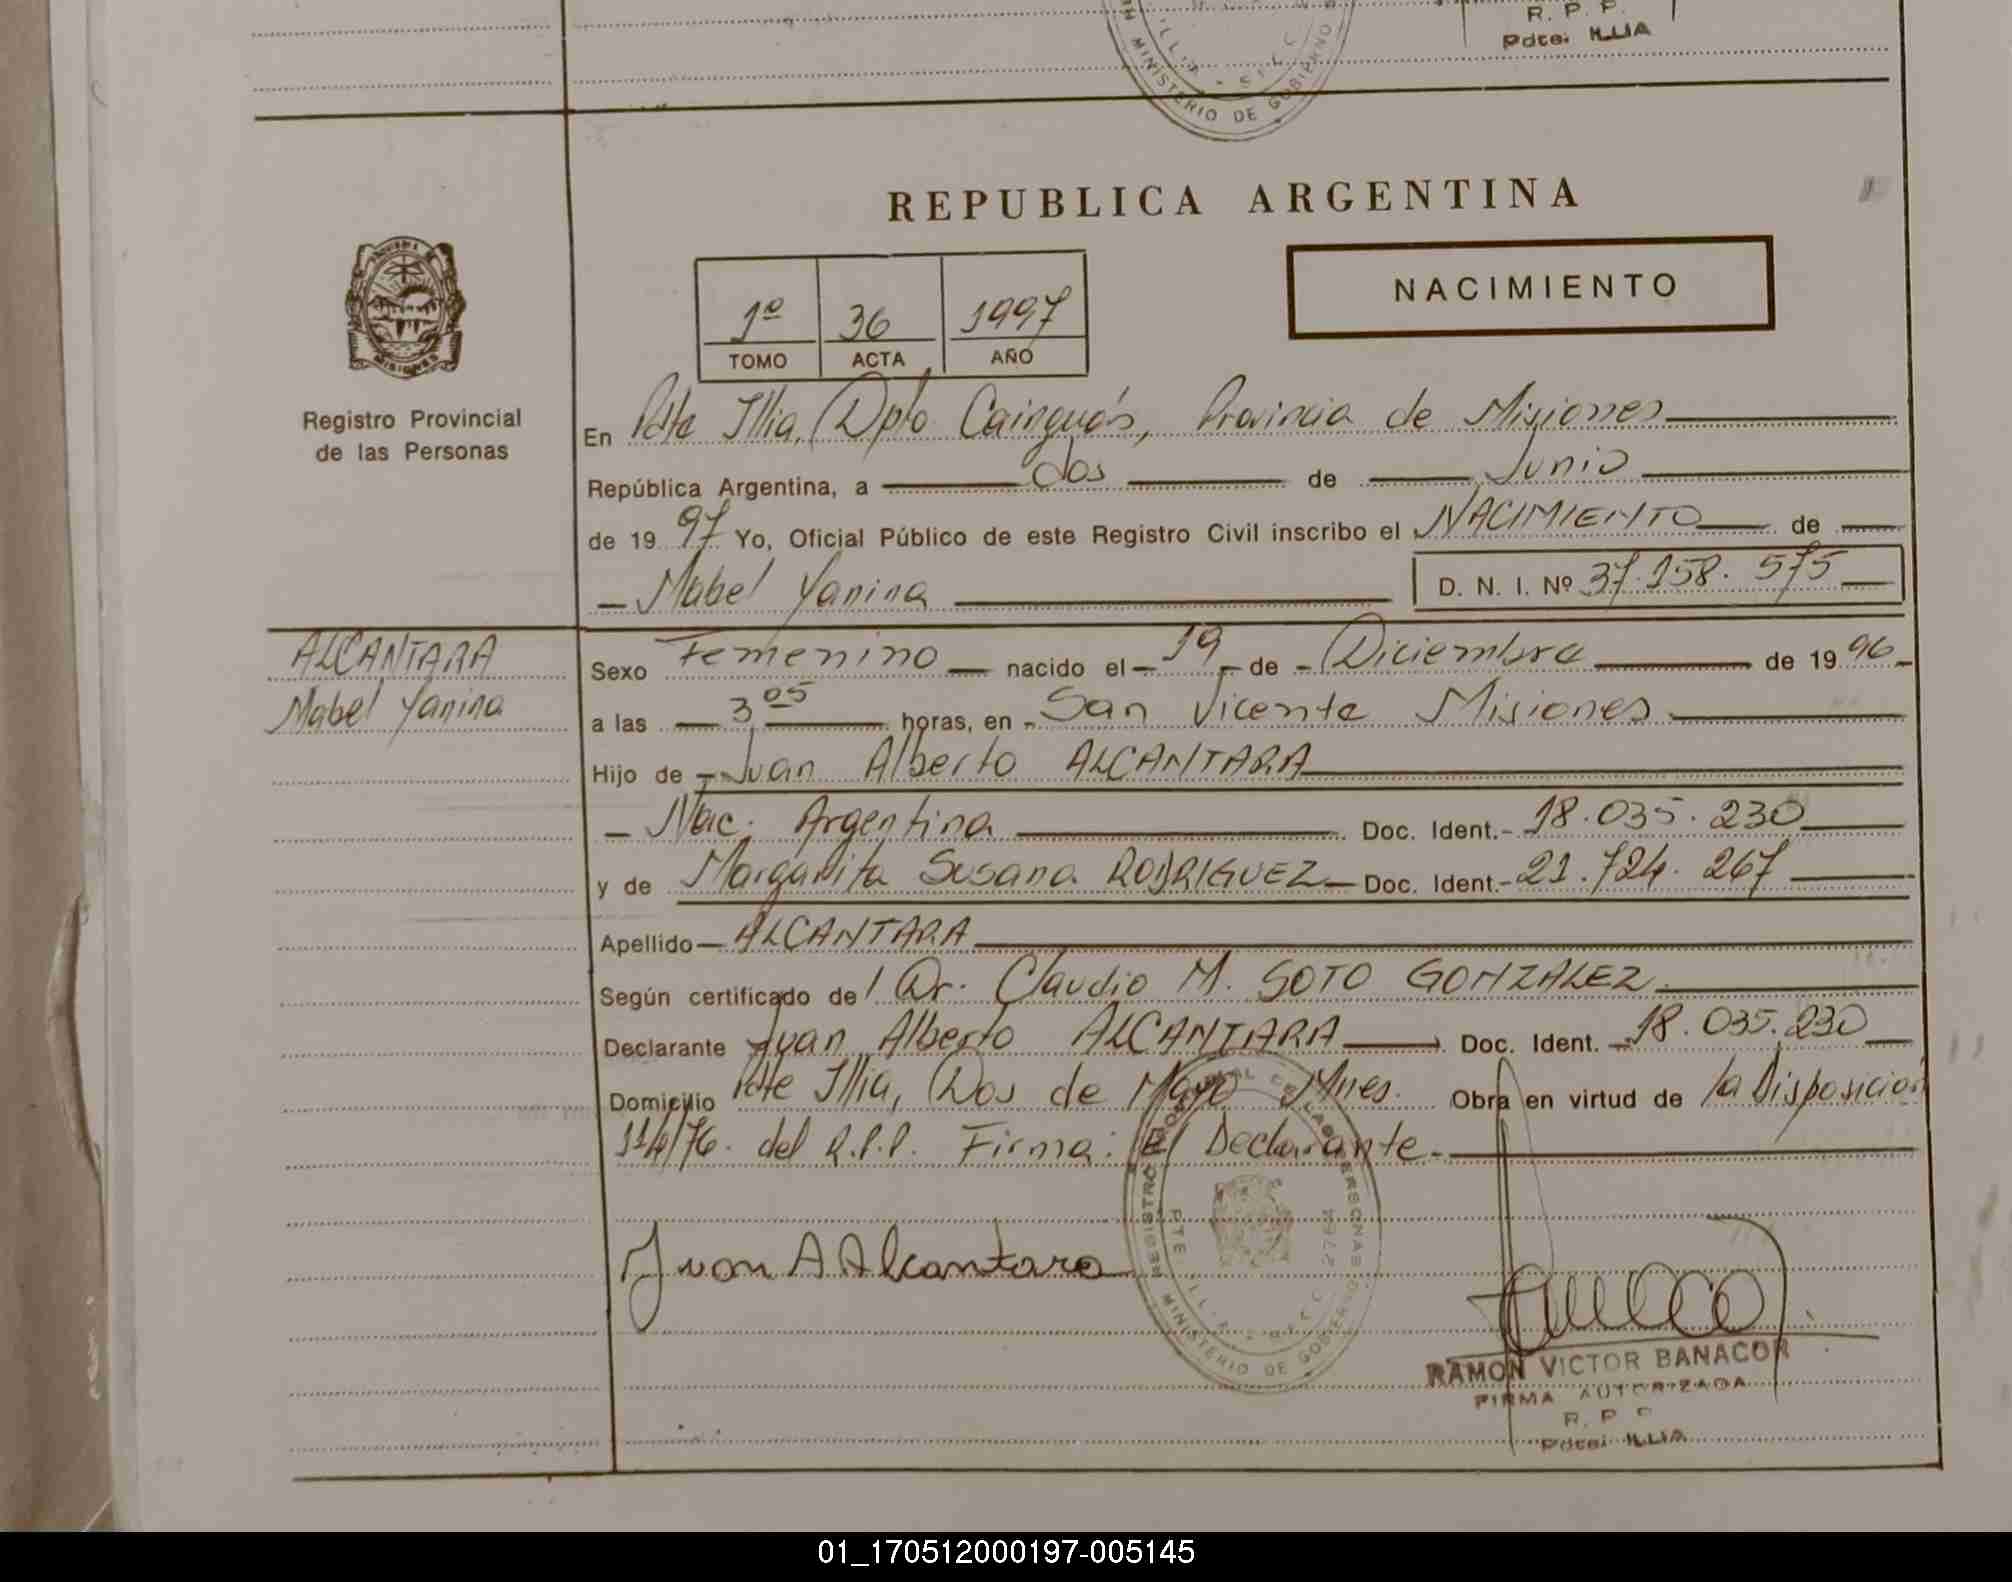 R. P. P.
Pdte. ILLIA
MINISTERIO DE GOBIERNO
REPUBLICA ARGENTINA
NACIMIENTO
1º 36 1997
TOMO ACTA AÑO
MISIONES
Registro Provincial
de las Personas
En Pdte Illia, Dpto Cainguás, Provincia de Misiones
República Argentina, a dos de Junio
de 1997 Yo, Oficial Público de este Registro Civil inscribo el NACIMIENTO de
Mabel Yanina D. N. I. Nº 37.158.575
ALCANTARA
Mabel Yanina
Sexo Femenino nacido el 19 de Diciembre de 1996
a las 3 05 horas, en San Vicente Misiones
Hijo de Juan Alberto ALCANTARA
Nac. Argentina Doc. Ident. 18.035.230
y de Margarita Susana RODRIGUEZ Doc. Ident. 21.724.267
Apellido ALCANTARA
Según certificado de Dr. Claudio M. SOTO GONZALEZ
Declarante Juan Alberto ALCANTARA Doc. Ident. 18.035.230
Domicilio Pdte Illia, Dos de Mayo Mnes. Obra en virtud de la Disposición
114/76. del R.P.P. Firma: El Declarante
Juan A Alcantara
MINISTERIO DE GOBIERNO
RAMON VICTOR BANACOR
FIRMA AUTORIZADA
R. P. P.
Pdte. ILLIA
01_170512000197-005145